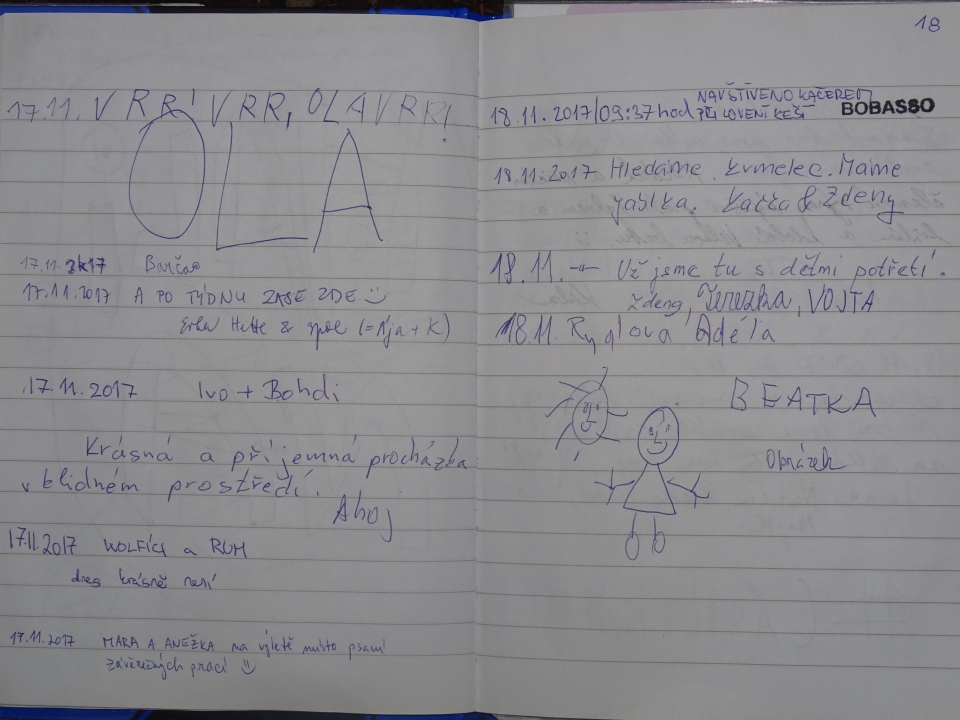 17.11. VRR! VRR, OLAVRR!
OLA
17.11.2k17 Barča
17.11.2017 A PO TÝDNU ZASE ZDE ☺
& spol (= + K)
17.11.2017 Ivo + Bohdi
Krásná a příjemná procházka
v klidném prostředí.
Ahoj
17.11.2017 WOLFÍCI a RUM
dnes krásně není
17.11.2017 MARA A ANEŽKA na výletě místo psaní
závěrečných prací ☺
18
18.11.2017/09:37hod NAVŠTÍVENO KAČEREM
PŘI LOVENÍ KEŠÍ BOBASSO
18.11.2017 Hledáme krmelec. Máme
jablka. Kačka & Zdeny
18.11. -"- Už jsme tu s dětmi potřetí.
Zdeny, Terezka, VOJTA
18.11. Rydlová Adéla
BEATKA
Obrázek